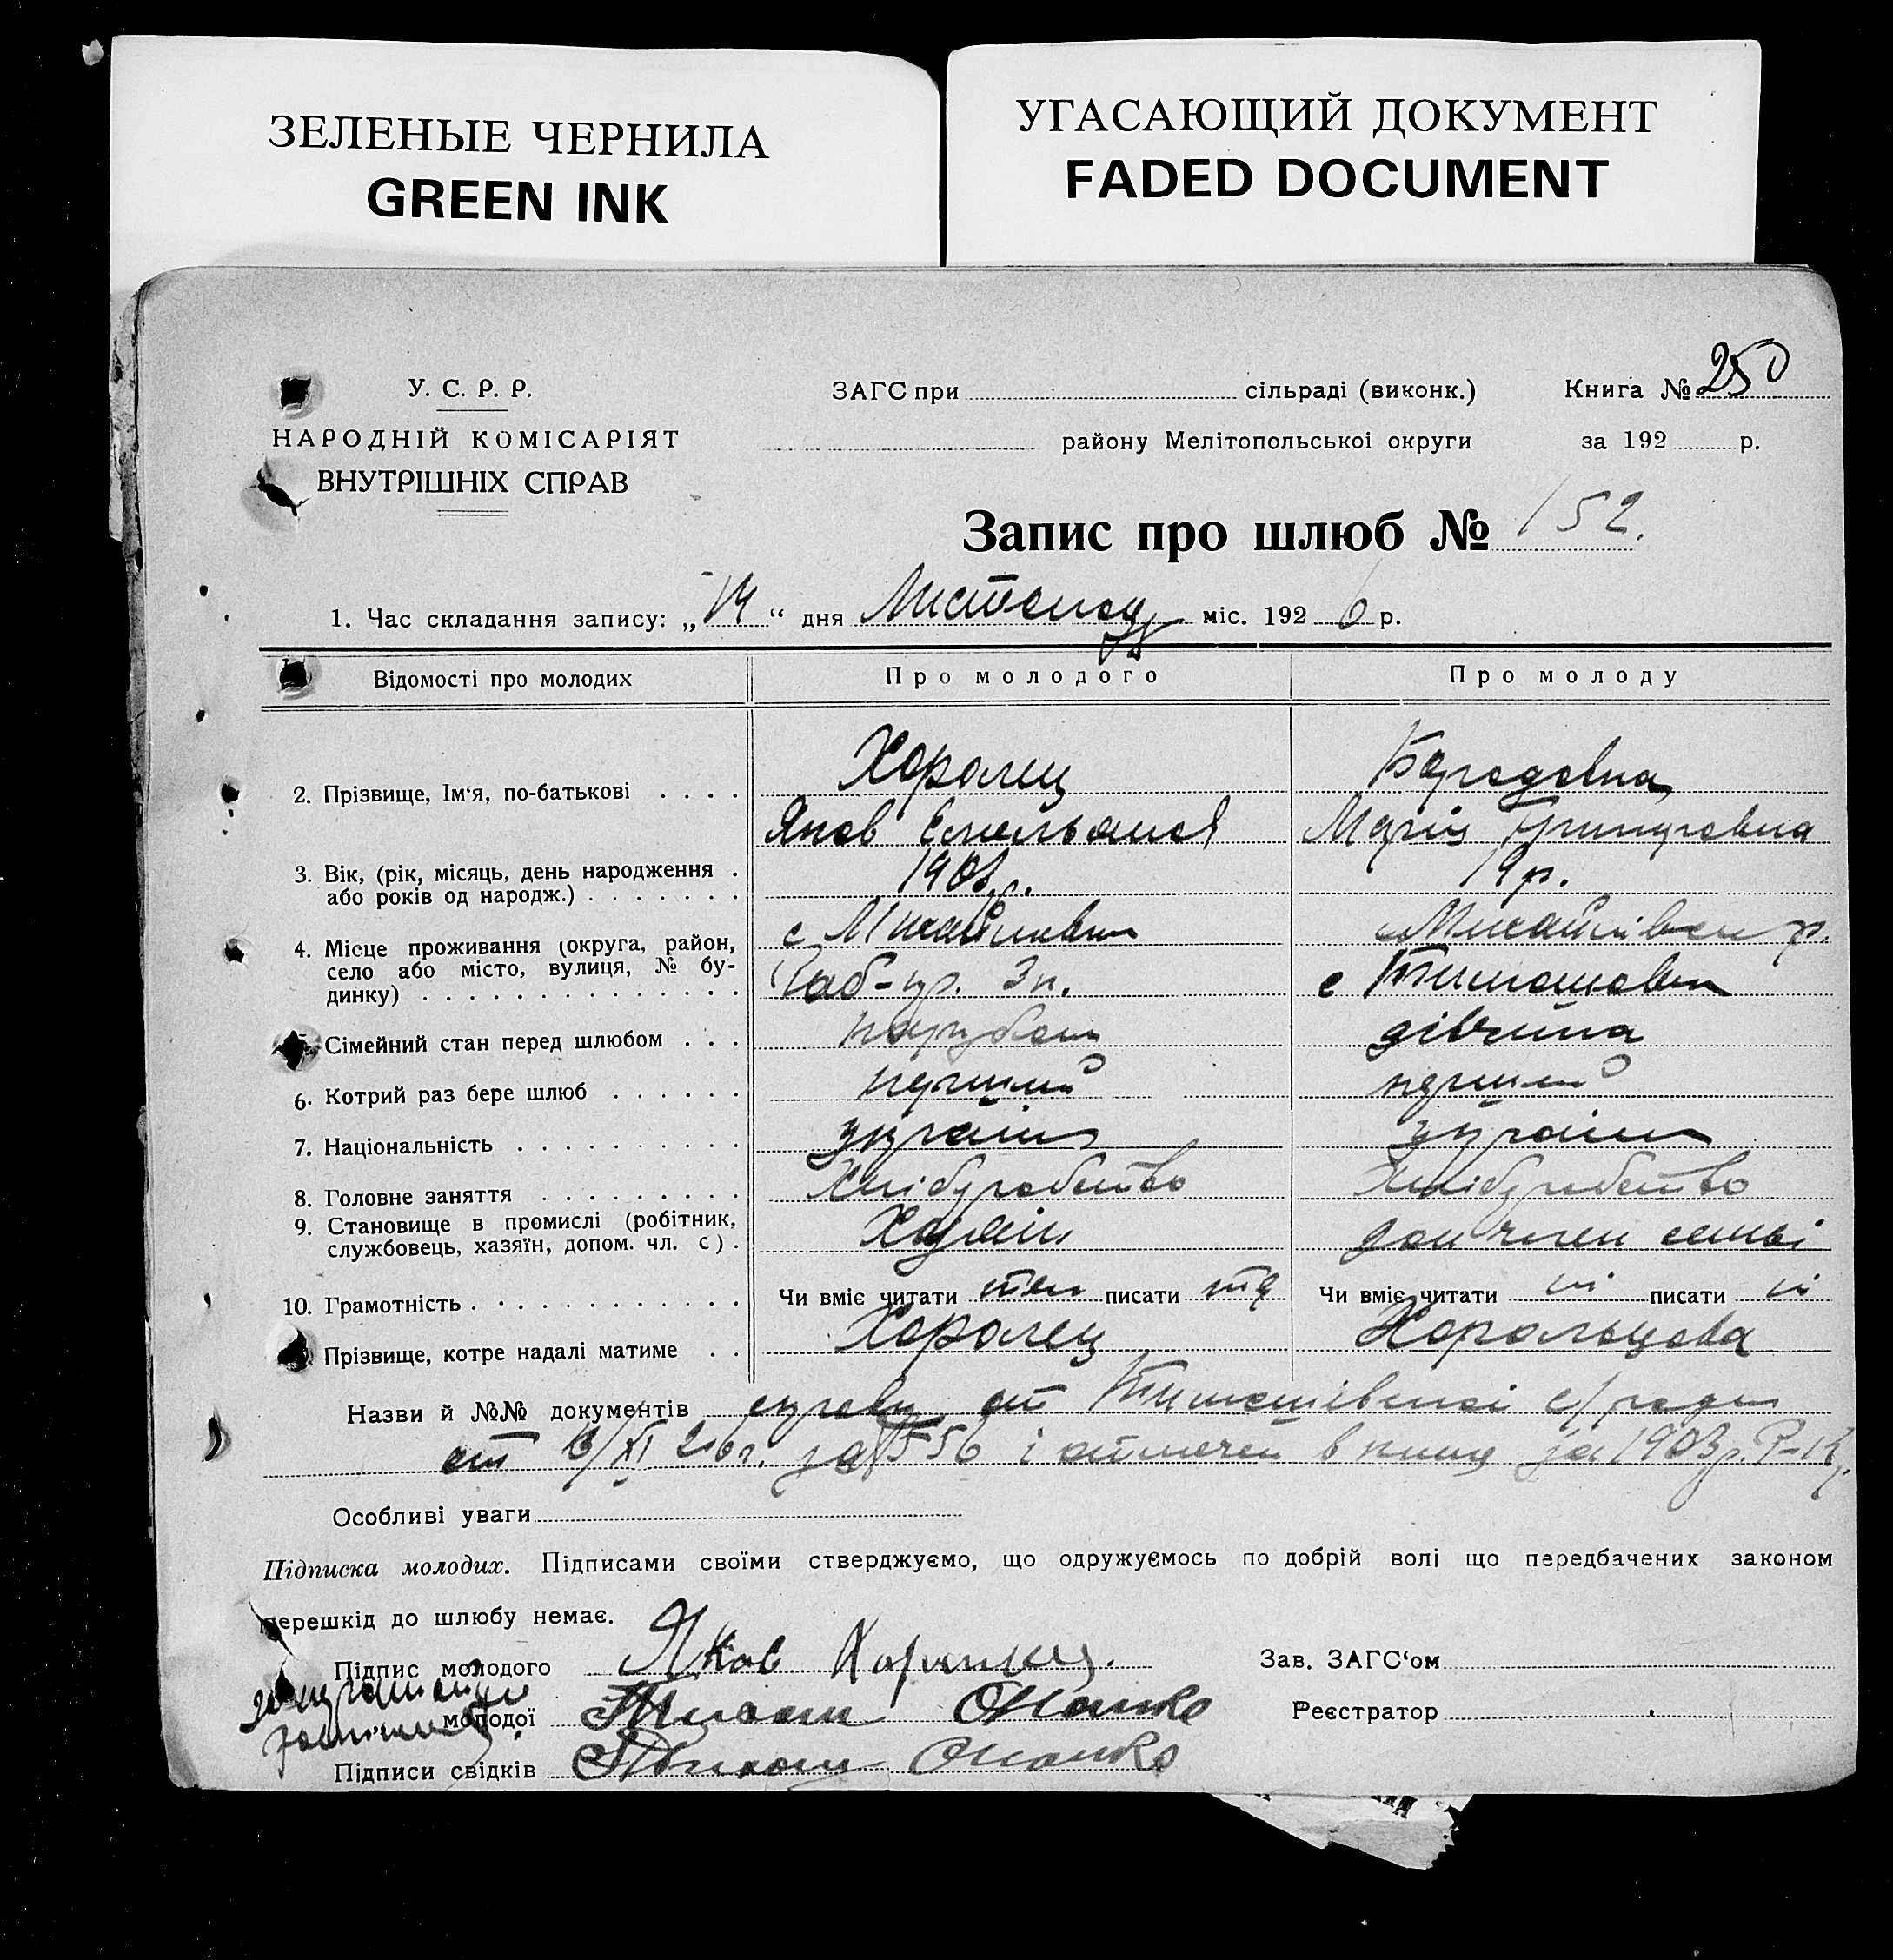 ЗЕЛЕНЫЕ ЧЕРНИЛА
GREEN INK
УГАСАЮЩИЙ ДОКУМЕНТ
FADED DOCUMENT
У. С. Р. Р.
НАРОДНІЙ КОМІСАРІЯТ
ВНУТРІШНІХ СПРАВ
ЗАГС при сільраді (виконк.) Книга № 250
району Мелітопольської округи за 192 р.
Запис про шлюб № 152.
1. Час складання запису: „14“ дня Листопад міс. 1926 р.
Відомості про молодих Про молодого Про молоду
2. Прізвище, Ім‘я, по-батькові Хоролец
Яков Емельянов Марія Григоровна
3. Вік, (рік, місяць, день народження 19 р.
або років од народж.)
4. Місце проживання (округа, район, с Михайловка Михайлівськ р.
село або місто, вулиця, № бу- с Тимошовка
динку)
5. Сімейний стан перед шлюбом парубок дівчина
6. Котрий раз бере шлюб перший перший
7. Національність україн україн
8. Головне заняття Хлібуробство Хлібуробство
9. Становище в промислі (робітник, Хазяїн доп член семьі
службовець, хазяїн, допом. чл. с).
10. Грамотність Чи вміє читати так писати так Чи вміє читати ні писати ні
Прізвище, котре надалі матиме Хоролец Хорольцова
Назви й №№ документів от Тимошівської с/ради
от /XI 26 г. за № 556 і отмечен в книц за 1903 р.
Особливі уваги
Підписка молодих. Підписами своїми стверджуємо, що одружуємось по добрій волі що передбачених законом
перешкід до шлюбу немає.
Підпис молодого Яков Хоролец. Зав. ЗАГС‘ом
молодої Реєстратор
Підписи свідків